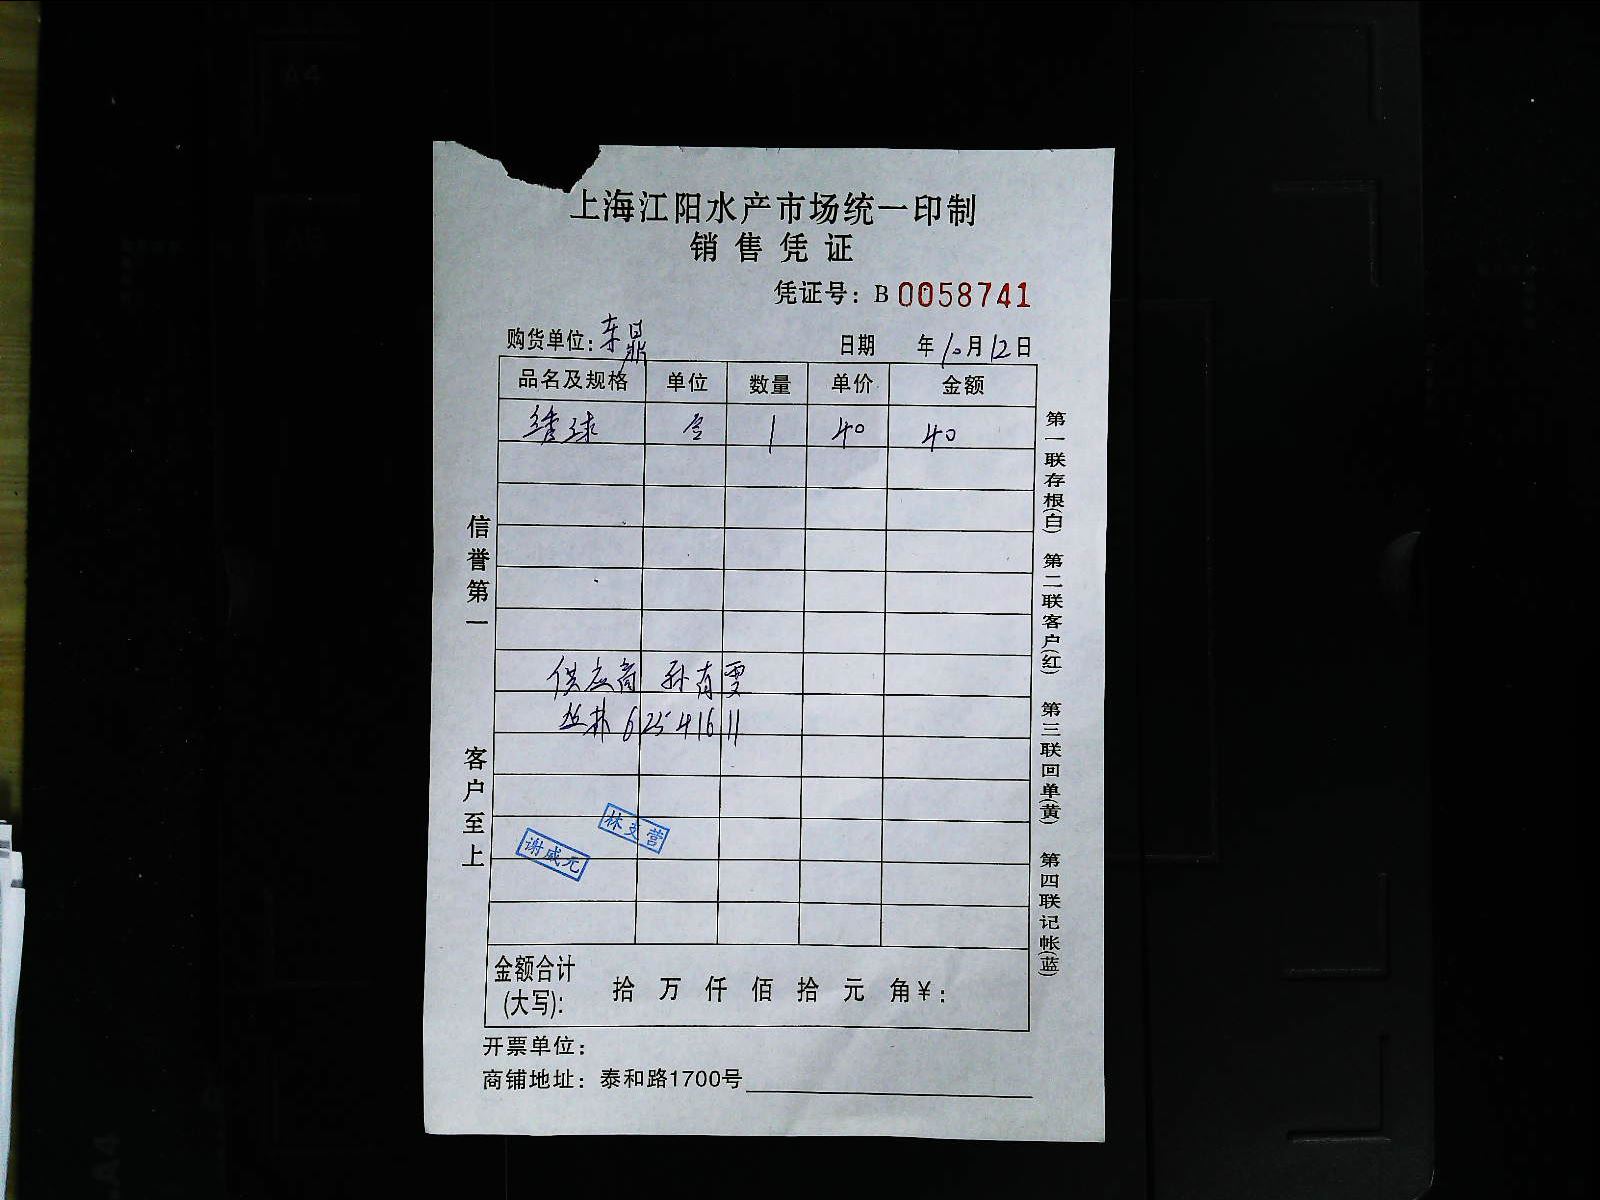 上海江阳水产市场统一印制
销售凭证
凭证号：B 0058741
购货单位：东鼎
日期 年10月12日
品名及规格 单位 数量 单价 金额
绣球 1 40 40
供应商 孙有雯
62541611
林支营
谢咸元
金额合计(大写)： 拾 万 仟 佰 拾 元 角 ¥：
开票单位：
商铺地址：泰和路1700号
信誉第一
客户至上
第一联存根(白) 第二联客户(红) 第三联回单(黄) 第四联记帐(蓝)
A4
A5
A4